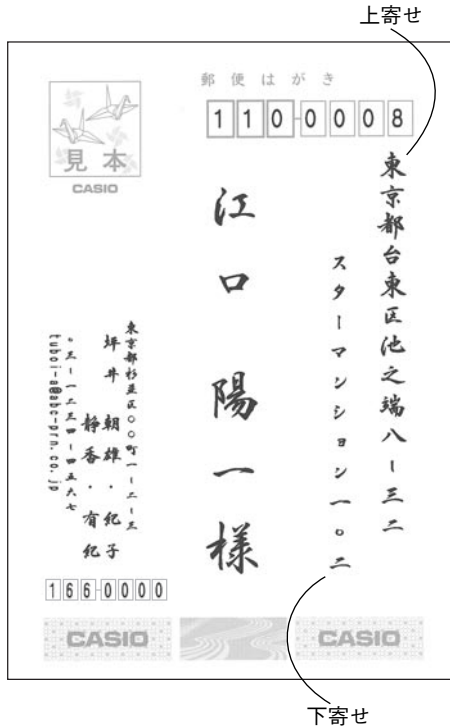 上寄せ
郵便はがき
110-0008
見本
CASIO
東京都台東区池之端八ー三二
スターマンション一〇二
江口 陽一 様
東京都杉並区〇〇町一ー二ー三
坪井 朝雄・紀子
静香・有紀
〇三ー一二三四ー四五六七
tuboi-a@abc-prn.co.jp
166-0000
CASIO
CASIO
下寄せ